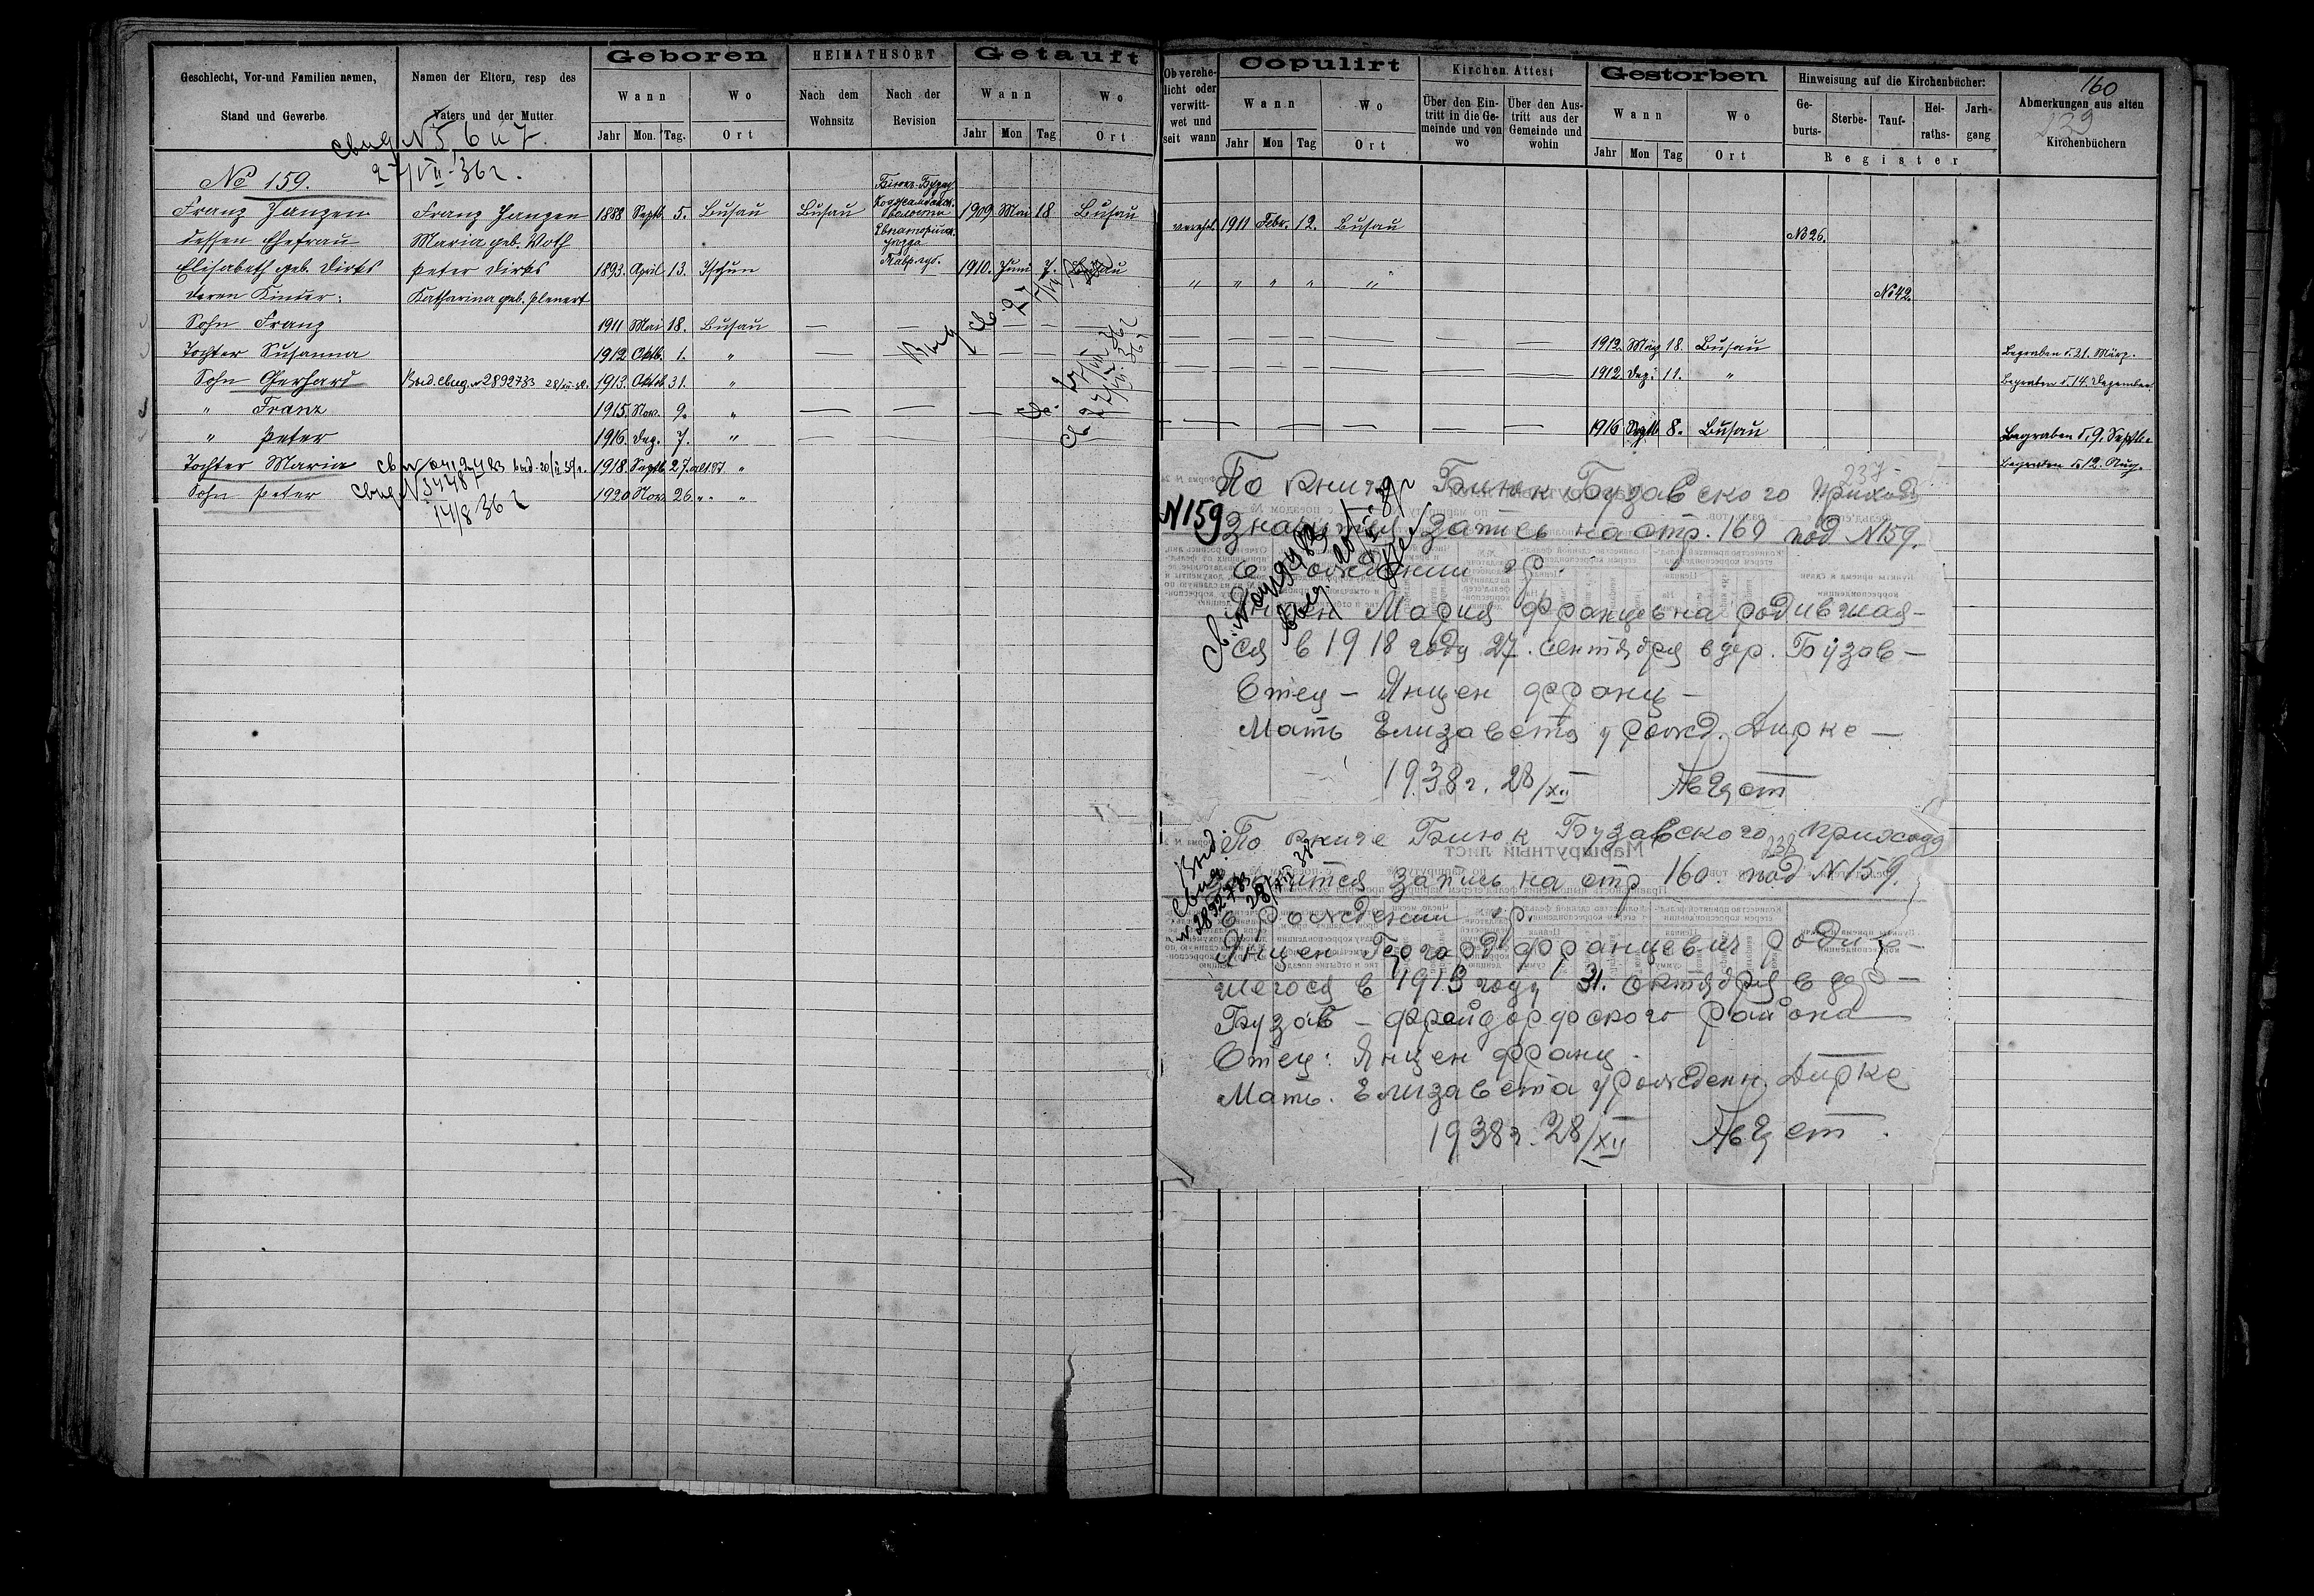 Geboren HEIMATHSORT Getauft
Geschlecht, Vor-und Familien namen, Stand und Gewerbe.
Namen der Eltern, resp des Vaters und der Mutter
Wann Wo Nach dem Wohnsitz Nach der Revision Wann Wo
Jahr Mon. Tag. Ort Jahr Mon Tag Ort
Свид. N 5, 6 и 7.
27/VII-36 г.
No 159.
Franz Janzen Franz Janzen 1888 Septb. 5. Busau Busau 1909 Mai 18 Busau
dessen Ehefrau Maria geb. Voth
Elisabeth geb. Dirks Peter Dirks 1893. April 13. Itschun 1910. Juni 7. Busau
deren Kinder: Katharina geb. Plenert
Sohn Franz 1911 Mai 18. Busau — — — —
Tochter Susanna 1912 Oktb. 1. " — — — —
Sohn Gerhard Выд. свид. N 2892733 28/XII-38. 1913. Oktb. 31. "
" Franz 1915. Nov. 9. " — — —
" Peter 1916. Dez. 7. " — — — —
Tochter Maria 1918. Septb. 27. alt. St. "
Sohn Peter Свид. N 34487 1920 Nov. 26. " "
14/8 36 г
Copulirt Kirchen. Attest Gestorben Hinweisung auf die Kirchenbücher: 160
Ob verehelicht oder verwittwet und seit wann
Wann Wo
Über den Eintritt in die Gemeinde und von wo
Über den Austritt aus der Gemeinde und wohin
Wann Wo
Geburts- Sterbe- Tauf- Heiraths- Jarhgang
Abmerkungen aus alten Kirchenbüchern
239
Jahr Mon Tag Ort Jahr Mon Tag Ort Register
verehel. 1911 Febr. 12. Busau No 26.
" " " " " No 42.
— — — — — — — 1912. März 18. Busau Begraben d. 21. März.
— — — — — — — 1912. Dez. 11. " Begraben d. 14. Dezember.
— — — — — — 1916 Septb 8. Busau Begraben d. 9. Septb.
Begraben d. 12. Aug.
237
По книге Биюк Бузавского прихода
N159 значится запись на стр. 160 под N159.
о рождении гр.
Янцен Мария Францевна родившая-
ся в 1918 году 27. сентября в дер. Бузав —
Отец — Янцен Франц —
Мать Елизавета урожд. Дирке —
1938 г. 28/XII Август
По книге Биюк Бузавского прихода
238
значится запись на стр 160. под N 159.
о рождении гр.
Янцен Гергард Францевич родив-
шегося в 1913 году 31. октября в дер —
Бузав — Фрайдорфского района
Отец: Янцен Франц.
Мать. Елизавета урожденн. Дирке
1938 г. 28/XII Август.
Выд. свид.
N 2892733
28/XII 38
Маршрутный лист